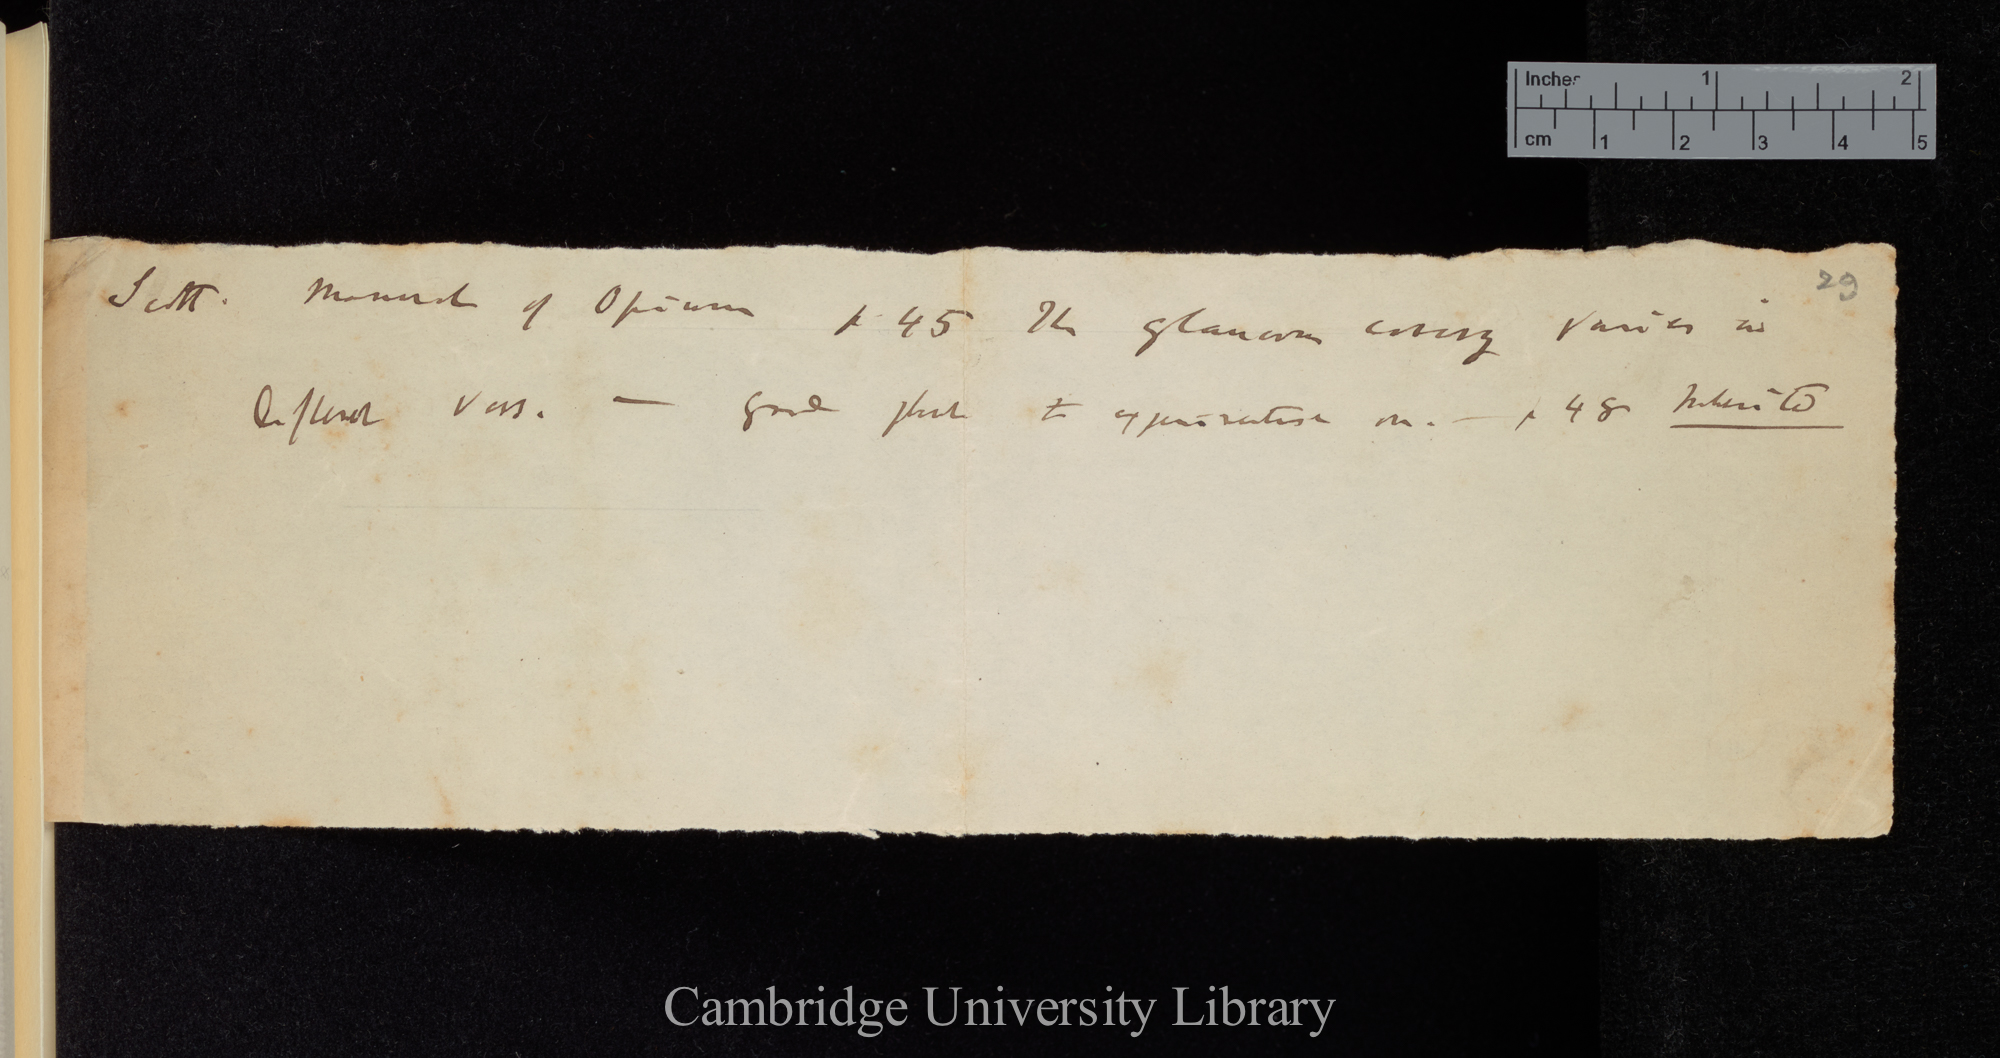 Inches 1 2
cm 1 2 3 4 5
29
Scott. Manual of Opium p 45 The glaucous coating varies in
different vars. — good plant to experimentise on. — p 48 Inherited
Cambridge University Library